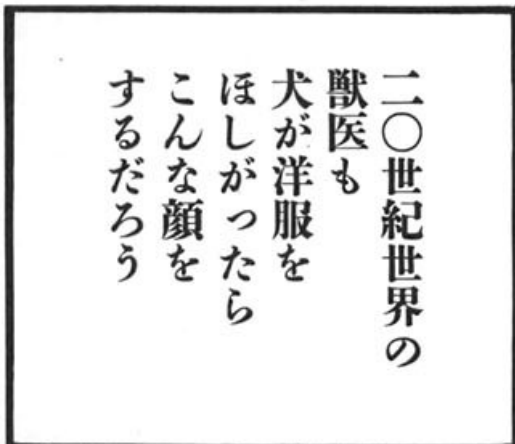 二〇世紀世界の
獣医も
犬が洋服を
ほしがったら
こんな顔を
するだろう